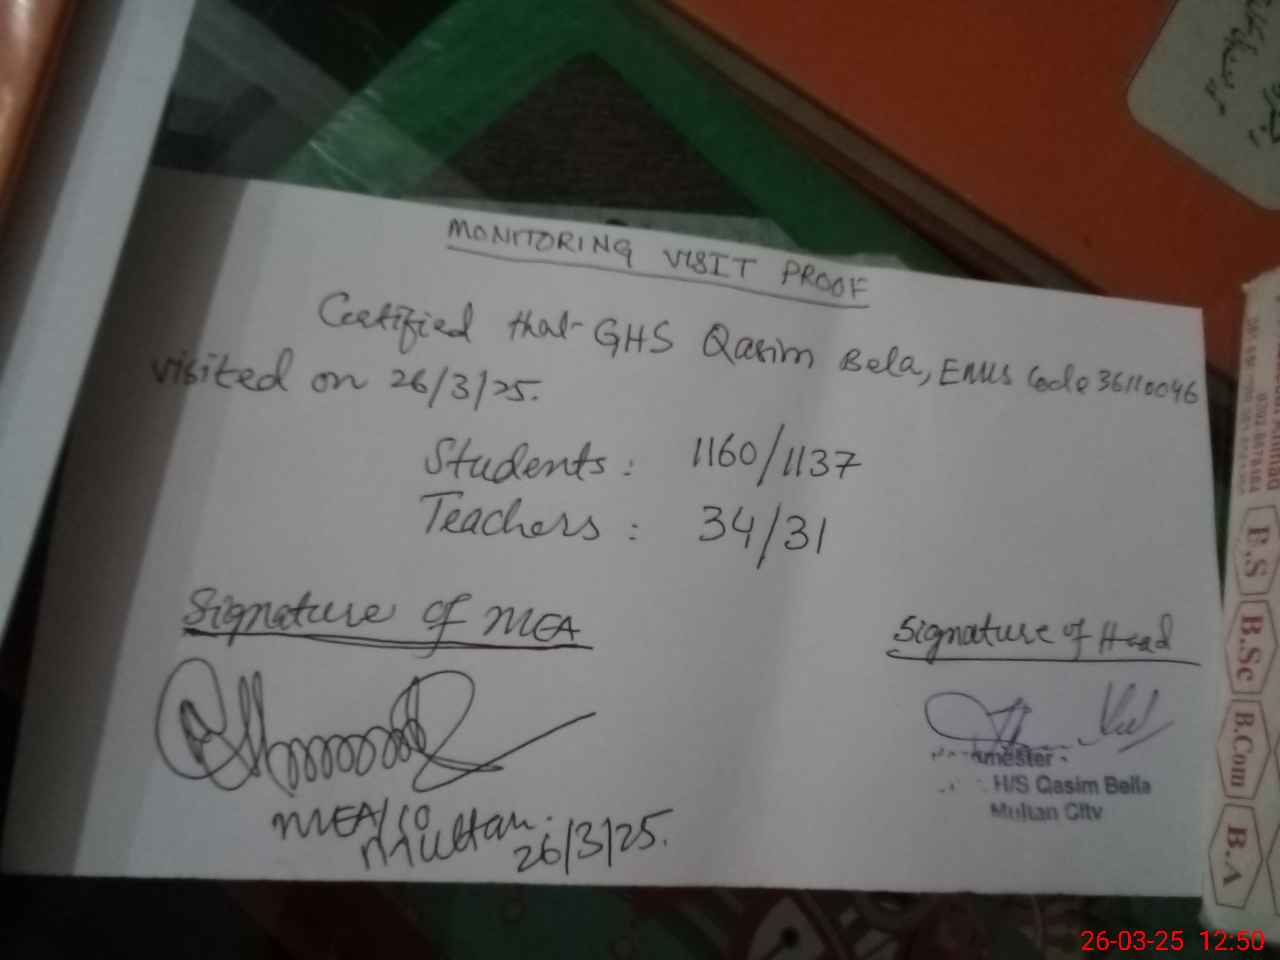 MONITORING VISIT PROOF
Certified that GHS Qasim Bela, EMIS Code 36110046
visited on 26/3/25.
Students : 1160/1137
Teachers : 34/31
Signature of MEA
Signature of Head
MEA/
Multan.
26/3/25.
H/S Qasim Bella
Multan City
F.S
B.Sc
B.Com
B.A
26-03-25 12:50